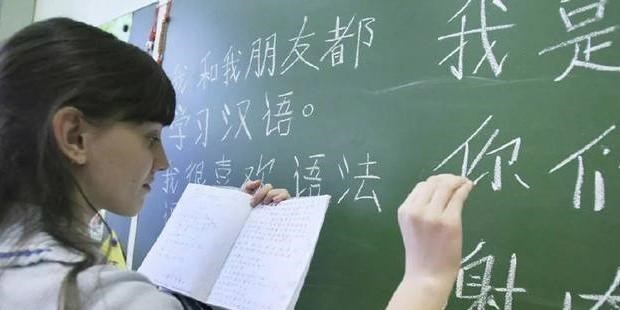 我和我朋友都
学习汉语。
我很喜欢语法
我是
你们
谢